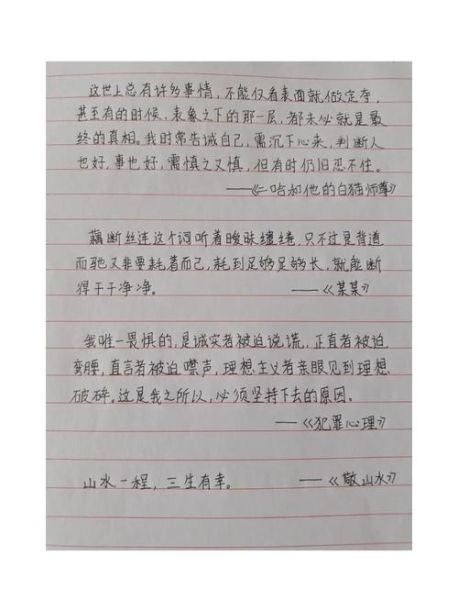 这世上总有许多事情，不能仅看表面就做定夺，
甚至有的时候，表象之下的那一层，都未必就是最
终的真相。我时常告诫自己，需沉下心来，判断人
也好，事也好，需慎之又慎，但有时仍旧忍不住。
——《二哈和他的白猫师尊》
藕断丝连这个词听着暧昧缱绻，只不过是背道
而驰又非要耗着而已，耗到足够足够长，就能断
得干干净净。 ——《某某》
我唯一畏惧的，是诚实者被迫说谎，正直者被迫
弯腰，直言者被迫噤声，理想主义者亲眼见到理想
破碎。这是我之所以，必须坚持下去的原因。
——《犯罪心理》
山水一程，三生有幸。 ——《敬山水》